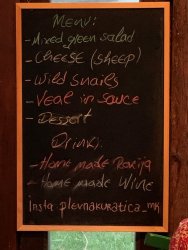 Menu:
- Mixed green salad
- CHEESE (SHEEP)
- Wild snails
- Veal in sauce
- Dessert
Drink:
- Home made Rakija
- Home made Wine
Insta plevnakuratica_mk